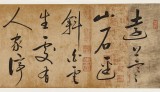 遠上寒
山石逕
斜白雲
生處有
人家停